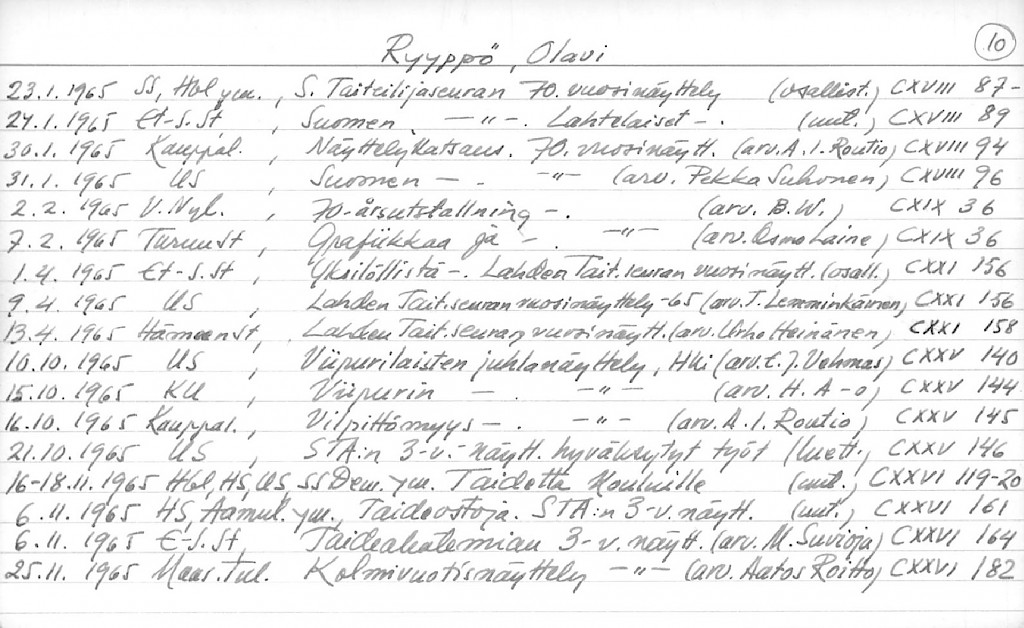 10
Ryyppö, Olavi
23.1.1965 SS, Hbl ym., S. Taiteilijaseuran 70. vuosinäyttely (osallist.) CXVIII 87-
24.1.1965 Et-S.St, Suomen -"-. Lahtelaiset -. (uut.) CXVIII 89
30.1.1965 Kauppal., Näyttelykatsaus. 70. vuosinäytt. (arv. A.I. Routio) CXVIII 94
31.1.1965 US, Suomen -. -"- (arv. Pekka Suhonen) CXVIII 96
2.2.1965 V.Nyl., 70-årsutställning -. (arv. B.W.) CXIX 36
7.2.1965 TurunSt, Grafiikkaa ja -. -"- (arv. Osmo Laine) CXIX 36
1.4.1965 Et-S.St, Yksilöllistä -. Lahden Tait.seuran vuosinäytt. (osall.) CXXI 156
9.4.1965 US, Lahden Tait.seuran vuosinäyttely -65 (arv. T. Lemminkäinen) CXXI 156
13.4.1965 HämeenSt, Lahden Tait.seuran vuosinäytt. (arv. Urho Heinänen) CXXI 158
10.10.1965 US, Viipurilaisten juhlanäyttely, Hki (arv. E.J. Vehmas) CXXV 140
15.10.1965 KU, Viipurin - -"- (arv. H. A-o) CXXV 144
16.10.1965 Kauppal., Vilpittömyys -. -"- (arv. A.I. Routio) CXXV 145
21.10.1965 US, STA:n 3-v.-näytt. hyväksytyt työt (luett.) CXXV 146
16-18.11.1965 Hbl, HS, US, SSDem. ym. Taidetta kouluille (uut.) CXXVI 119-20
6.11.1965 HS, Aamul. ym., Taideostoja. STA:n 3-v. näytt. (uut.) CXXVI 161
6.11.1965 E-S.St, Taideakatemian 3-v. näytt. (arv. M. Suvioja) CXXVI 164
25.11.1965 Maas.Tul. Kolmivuotisnäyttely -"- (arv. Aatos Roitto) CXXVI 182